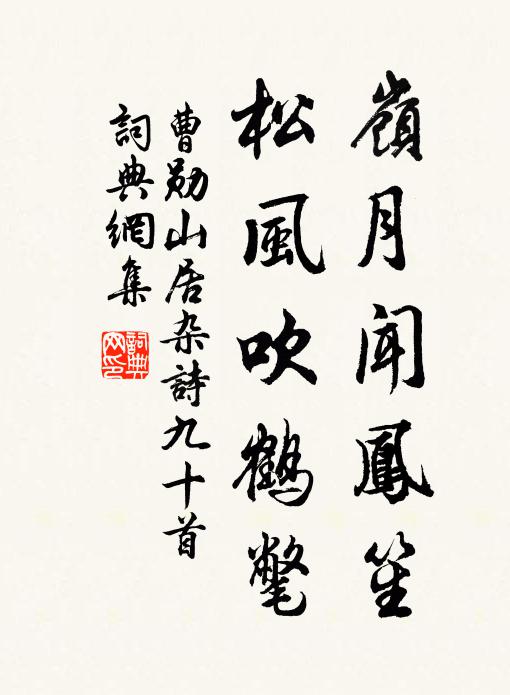 嶺月闻鳳笙
松風吹鶴氅
曹勋山居杂詩九十首
詞典網集
詞典网印